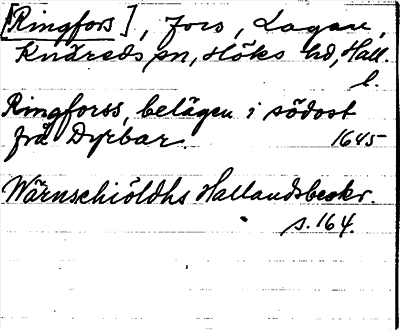 [Ringfors], fors, Lagan,
Knäreds sn, Höks hd, Hall.
l.
Ringforss, belägen i södost
frå Dyrbar. 1645
Wärnschiöldhs Hallandsbeskr.
s. 164.